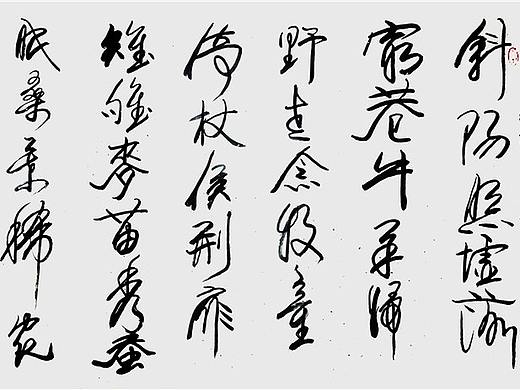 斜陽照墟落
窮巷牛羊歸
野老念牧童
倚杖候荆扉
雉雊麥苗秀蚕
眠桑葉稀